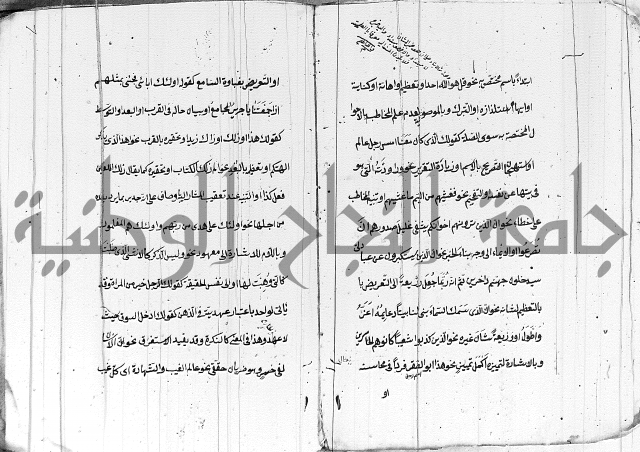 ابتداءً باسم مختص به نحو قل هو الله احد او تعظيم او اهانة او كناية
او ايهام استلذاذه او التبرك به وبالموصولية لعدم علم المخاطب بالاحوا
ل المختصة به سوى الصلة كقولك الذى كان معنا امس رجل عالم
او استهجان التصريح بالاسم او زيادة التقرير نحو وراودته التى هو
فى بيتها عن نفسه او التفخيم نحو فغشيهم من اليم ما غشيهم او تنبيه المخاطب
على خطاء نحو ان الذين ترونهم اخوانكم يشفى غليل صدورهم ان
تصرعوا او الايماء الى وجه بناء الخبر نحو ان الذين يستكبرون عن عبادتى
سيدخلون جهنم داخرين ثم انه ربما جعل ذريعة الى التعريض با
بالتعظيم لشانه نحو ان الذى سمك السماء بنى لنا بيتا دعايمه اعز
واطول او ذريعة شان غيره نحو الذين كذبوا شعيبا كانوا هم الخاسرين
وبالاشارة لتميزه اكمل تمييز نحو هذا ابو الصقر فردا فى محاسنه
او
او التعريض بغباوة السامع كقوله اولئك ابائى فجئنى بمثلهم
اذا جمعتنا يا جرير المجامع او بيان حاله فى القرب او البعد او التوسط
كقولك هذا او ذلك او ذاك زيد او تحقيره بالقرب نحو اهذا الذى يذكر
الهتكم او تعظيمه بالبعد نحو الم ذلك الكتاب او تحقيره كما يقال ذلك اللعين
فعل كذا او التنبيه عند تعقيب المشار اليه باوصاف على انه جدير بما يرد بعده
من اجلها نحو اولئك على هدى من ربهم واولئك هم المفلحون
وباللام للاشارة الى معهود نحو وليس الذكر كالانثى اى الذى طلبت
كالتى وهبت لها او الى نفس الحقيقة كقولك الرجل خير من المراة وقد
ياتى لواحد باعتبار عهديته فى الذهن كقولك ادخل السوق حيث
لا عهد وهذا فى المعنى كالنكرة وقد يفيد الاستغراق نحو ان الانسان
لفى خسر وهو ضربان حقيقى نحو عالم الغيب والشهادة اى كل غيب
جامعة النجاح الوطنية